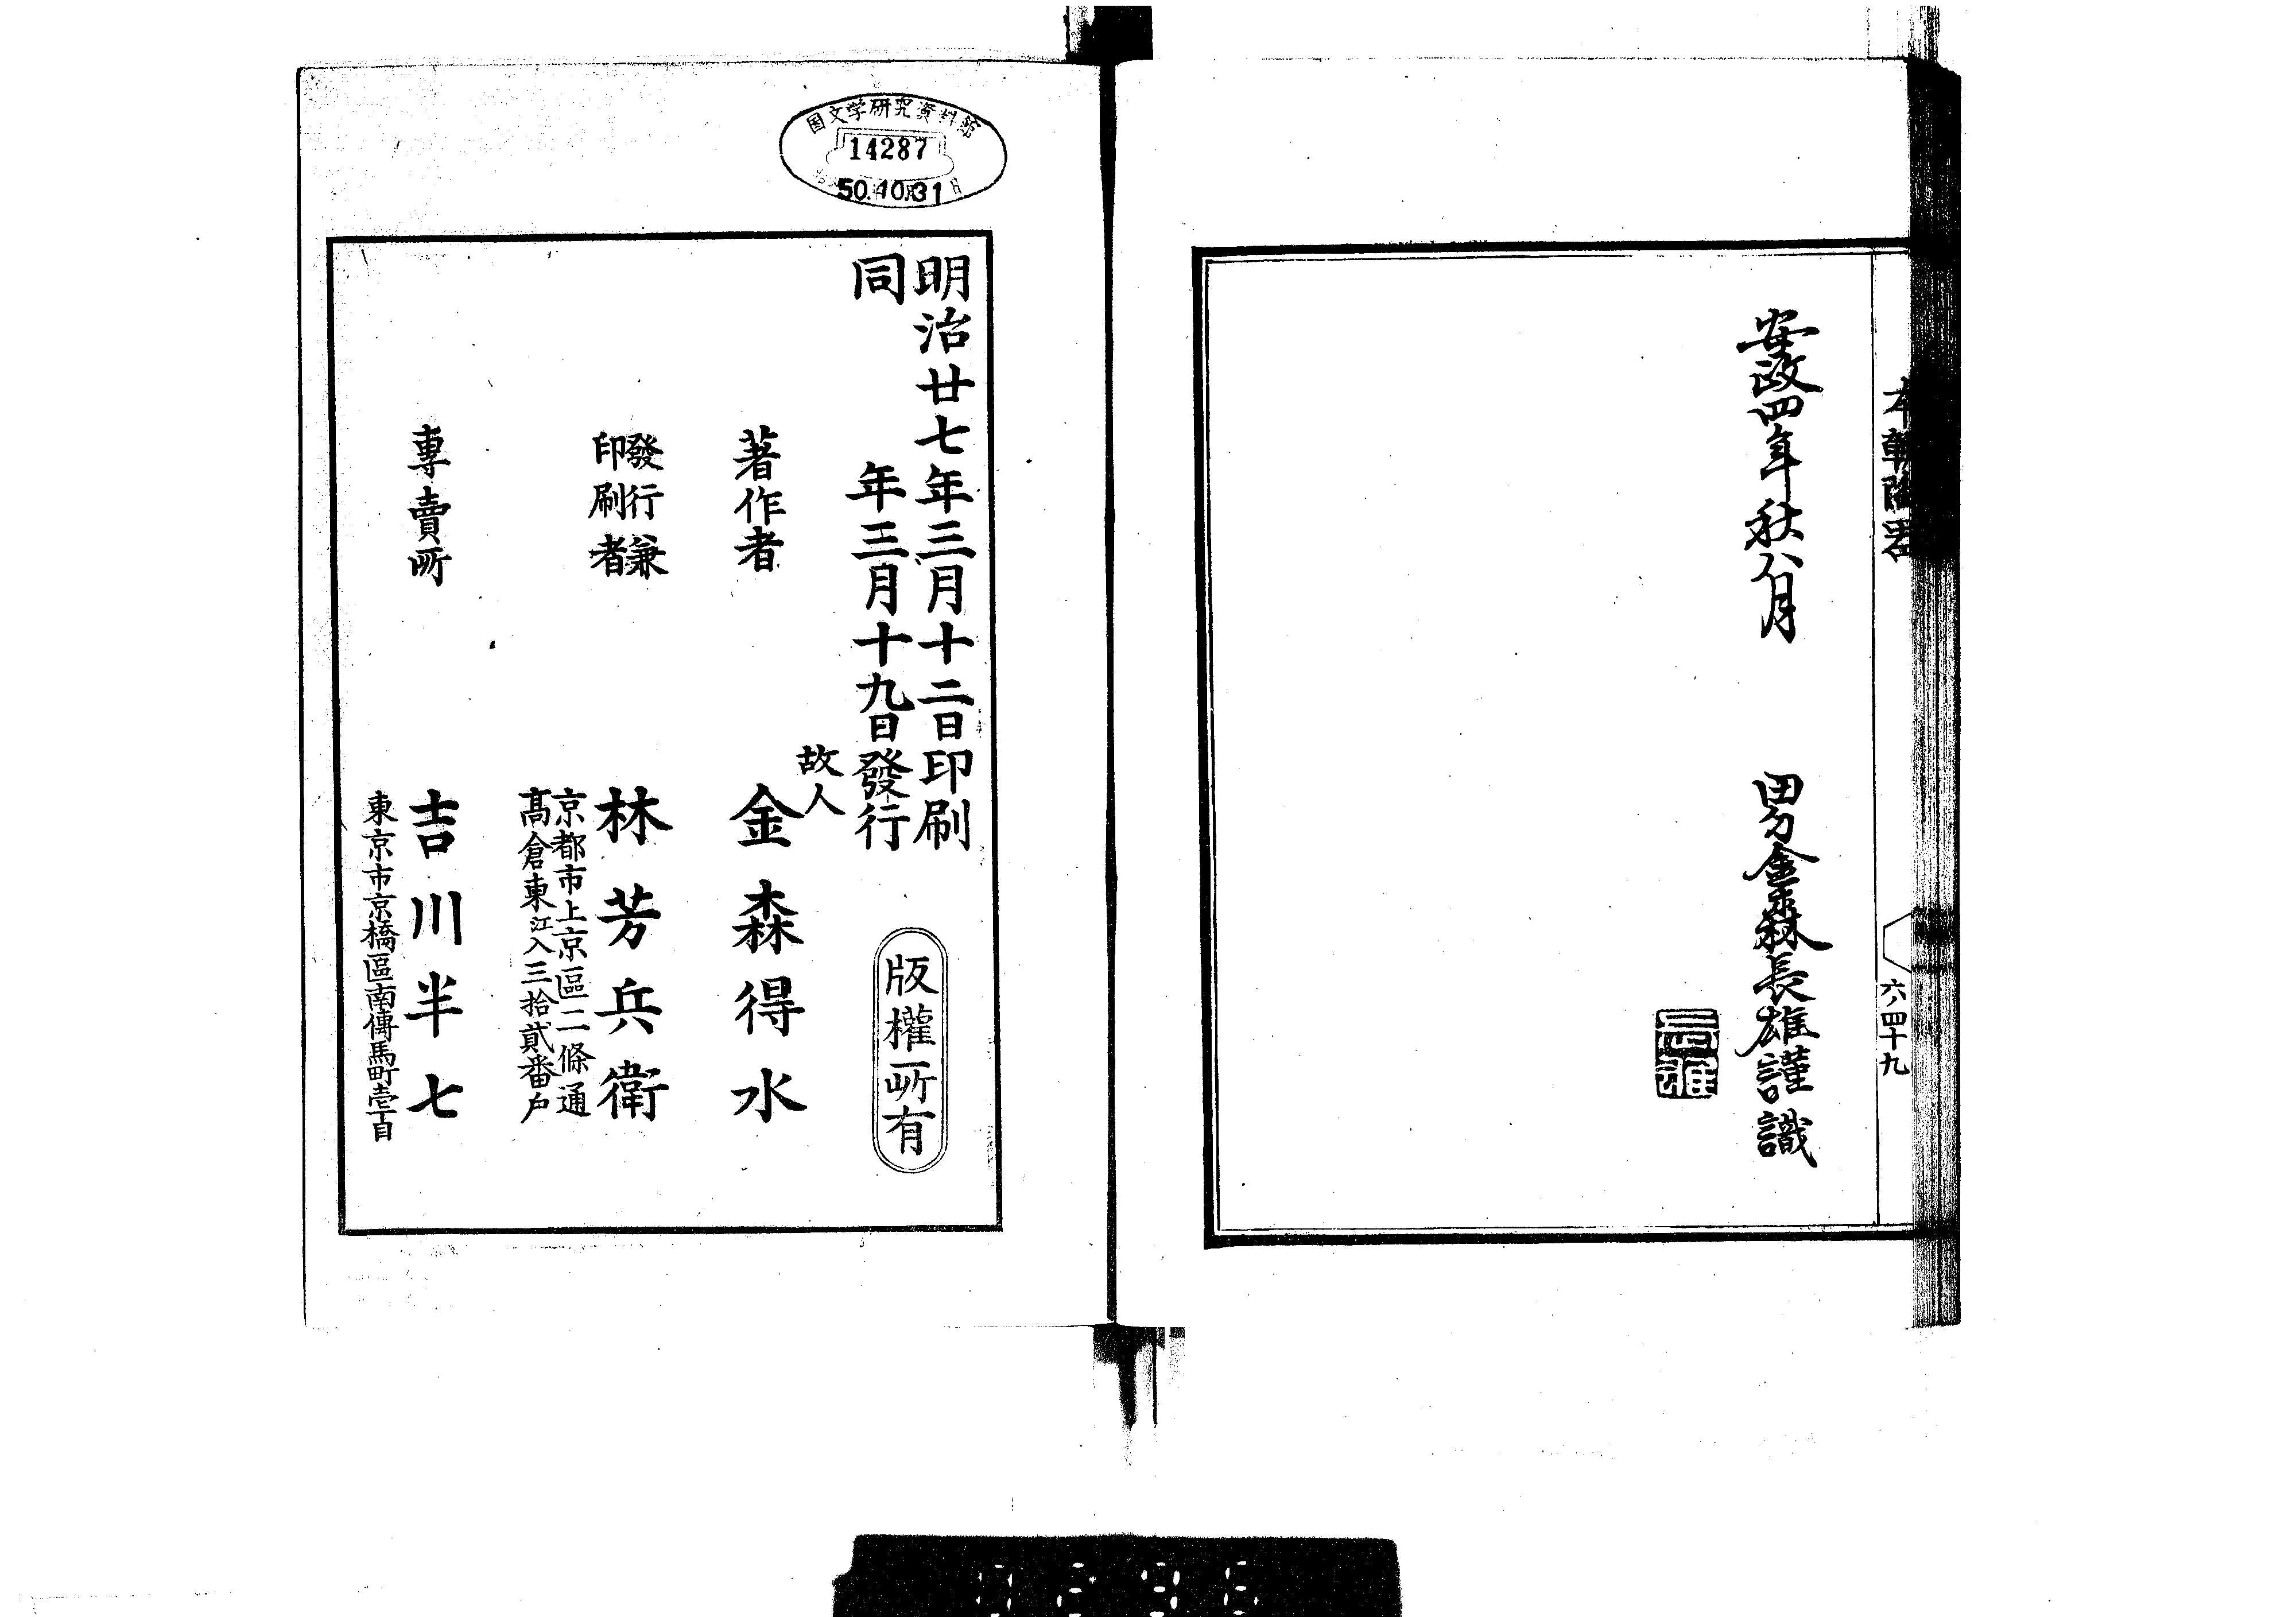 安政四年秋八月
男金森長雄謹識
長雄
六ノ四十九
国文学研究資料館
14287
50.10.31
明治廿七年三月十二日印刷
同年三月十九日發行
版權所有
著作者
故人
金森得水
發行兼
印刷者
林芳兵衛
京都市上京區二條通
髙倉東江入三拾貳番戶
專賣所
吉川半七
東京市京橋區南傳馬町壹丁目